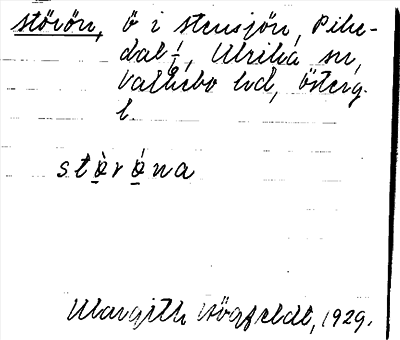 störön, ö i stensjön, Pike-
dal 1/4, Ulrika sn,
Valkebo hd, Österg.
l.
stò̱ró̱na
Margith Högfeldt, 1929.